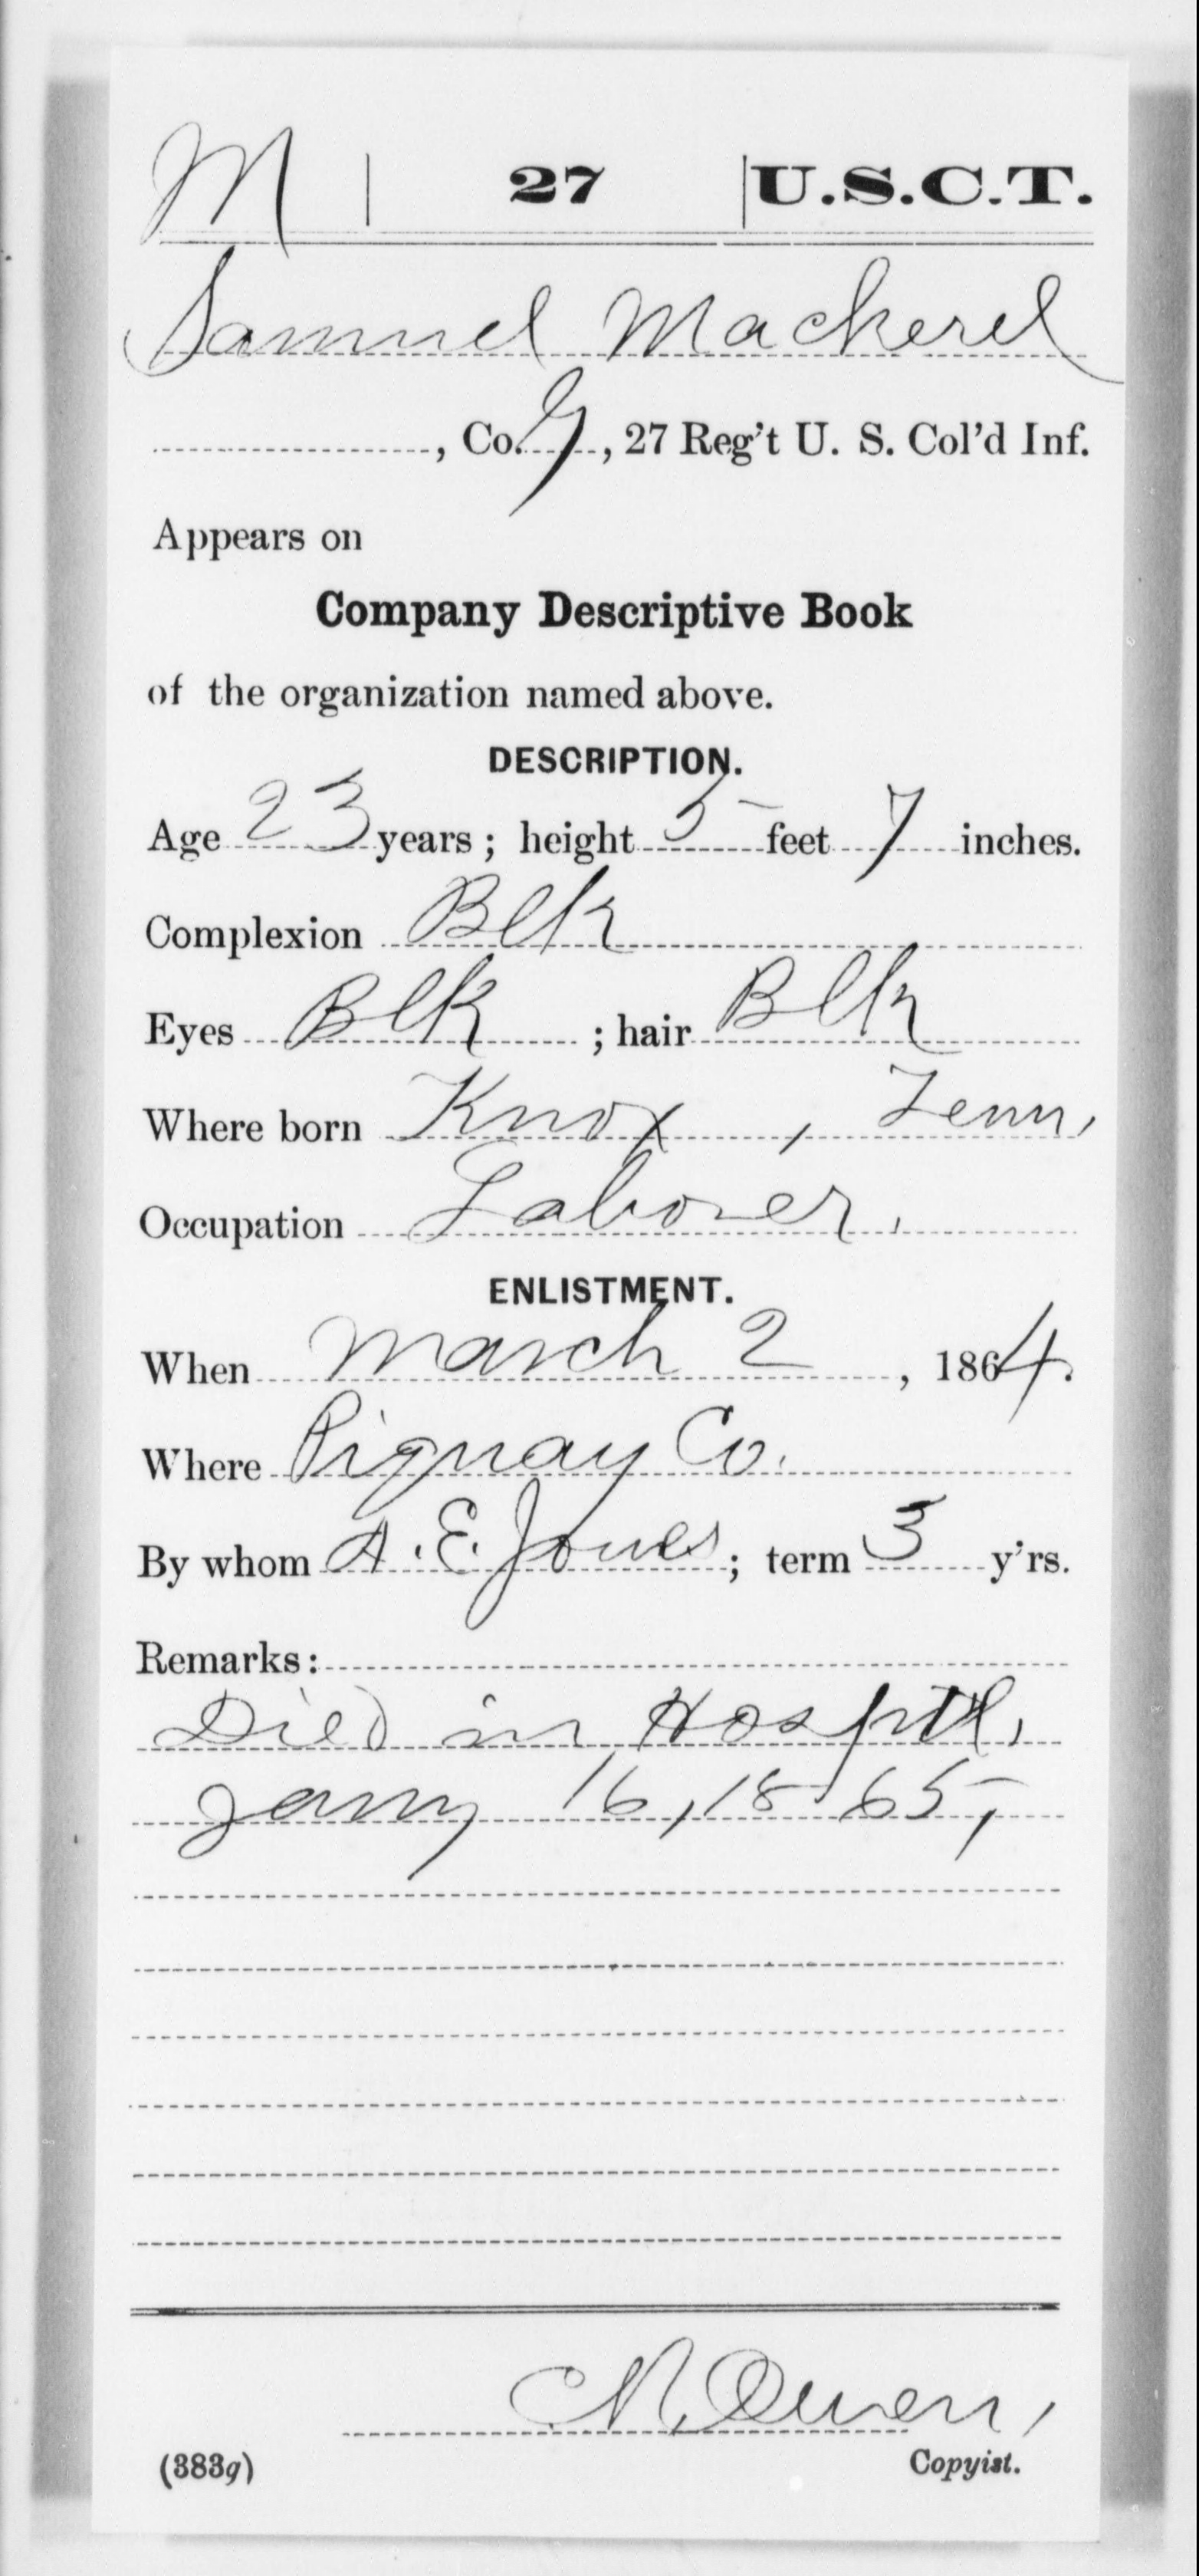 M | 27 | U.S.C.T.
Samuel Mackerel
, Co. G, 27 Reg't U. S. Col'd Inf.
Appears on
Company Descriptive Book
of the organization named above.
DESCRIPTION.
Age 23 years; height 5 feet 7 inches.
Complexion Blk
Eyes Blk ; hair Blk
Where born Knox, Tenn,
Occupation Laborer,
ENLISTMENT.
When March 2, 1864.
Where Piquay Co.
By whom A. E. Jones; term 3 y'rs.
Remarks:
Died in Hosptl,
Jany 16, 1865,
Owen,
Copyist.
(383g)